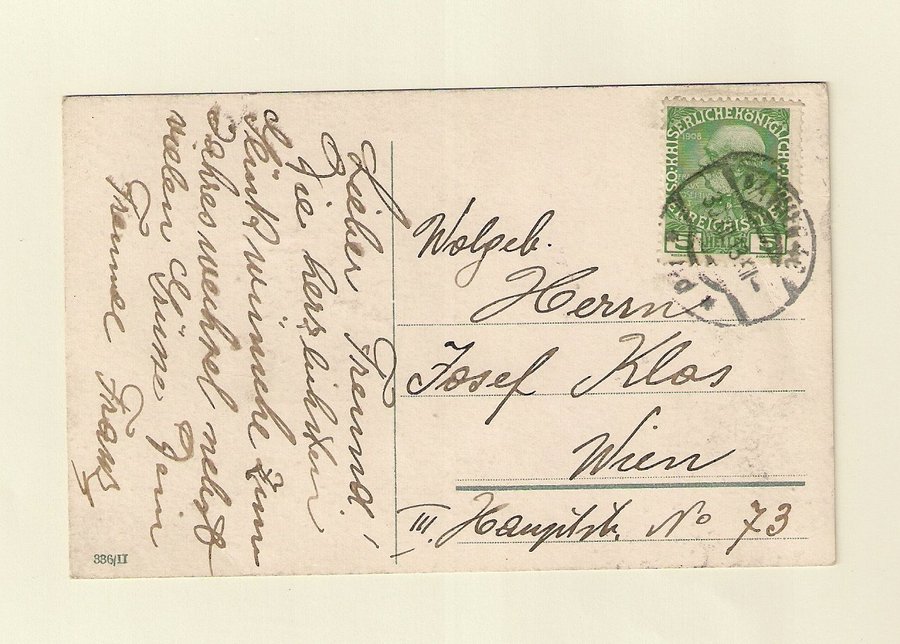 Lieber Freund!
Die herzlichsten
Glückwünsche zum
Jahreswechsel nebst
vielen Grüsse Dein
Freund Franz
Wolgeb.
Herrn
Josef Klos
Wien
III. Hauptstr. No 73
336/II
1908
5 HELLER 5